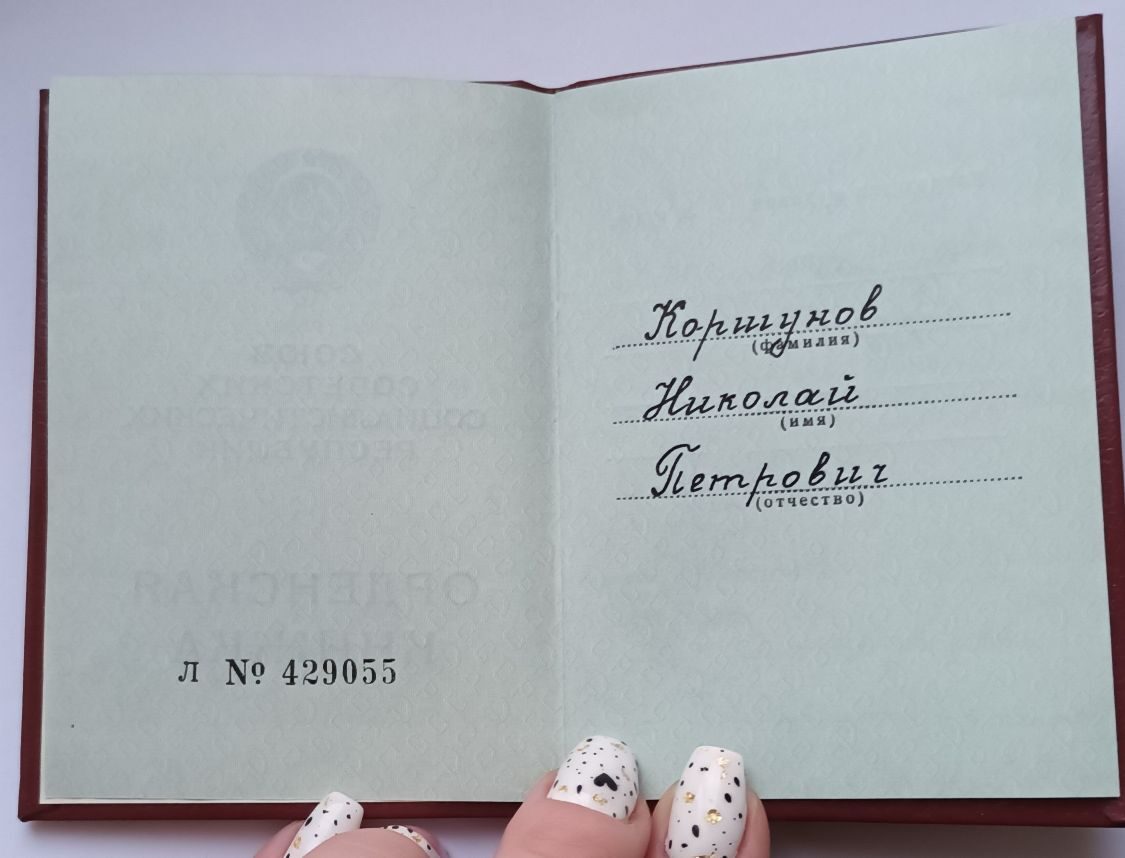 Л № 429055
Коршунов
(фамилия)
Николай
(имя)
Петрович
(отчество)